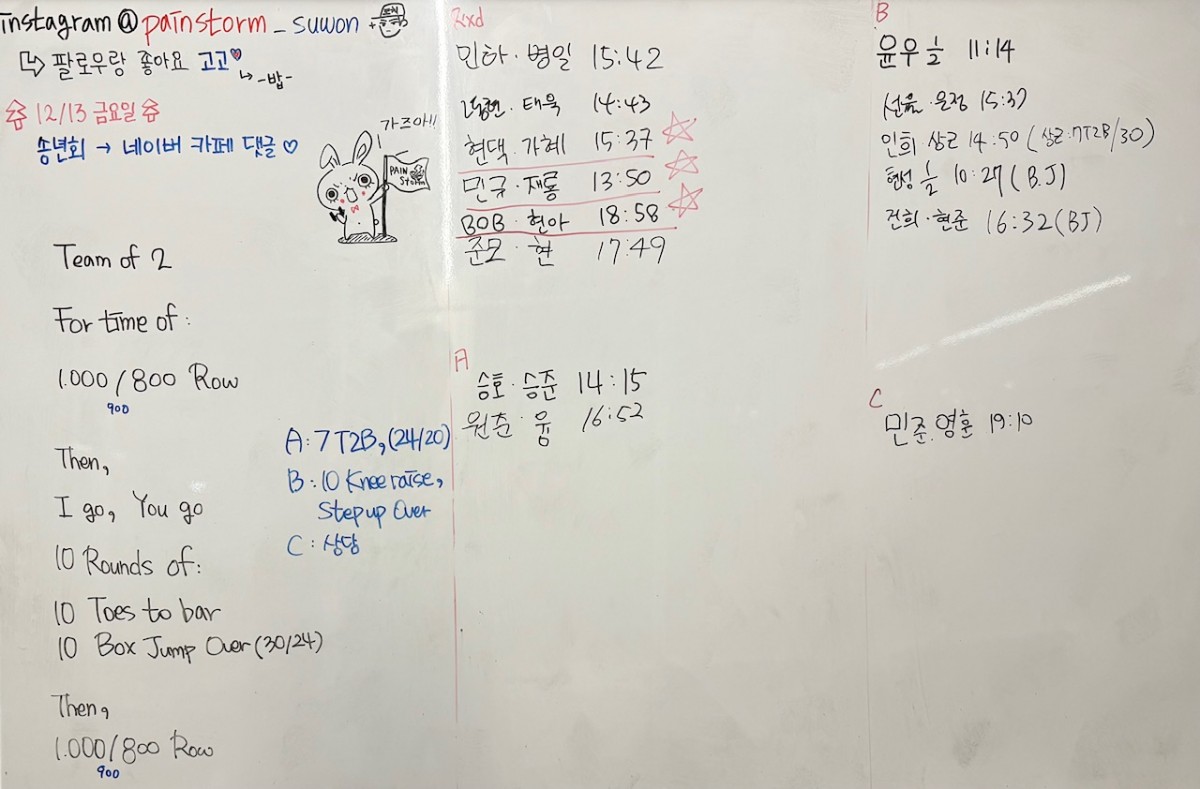 instagram@painstorm_suwon
↳ 팔로우랑 좋아요 고고♥
↳ -밥-
12/13 금요일
송년회 → 네이버 카페 댓글 ♡
가즈아!!
PAIN
Storm
Team of 2
For time of:
1.000/800 Row
900
Then,
I go, You go
10 Rounds of:
10 Toes to bar
10 Box Jump Over (30/24)
Then,
1.000/800 Row
900
A: 7 T2B, (24/20)
B: 10 Knee raise,
Step up Over
C: 상담
Rxd
민하·병일 15:42
태욱 14:43
현택·가혜 15:37 ☆
민규·재롱 13:50 ☆
BOB·현아 18:58 ☆
준모·현 17:49
A
승호·승준 14:15
원준·융 16:52
B
윤우 ½ 11:14
선율·은정 15:37
인희 상근 14:50 (상근:7T2B/30)
형성 ½ 10:27 (B.J)
건희·현준 16:32 (BJ)
C
민준.영훈 19:10